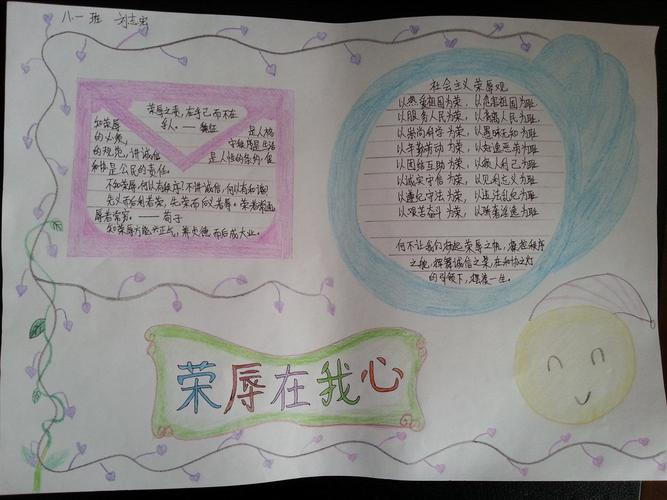 八一班 刘志宏
荣辱之来,在乎己而不在
乎人。——魏征
知荣辱
是人格
的必然,
守秩序是生活
的规范,讲诚信
是人性的条约,促
和谐是公民的责任。
不知荣辱,何以有秩序?不讲诚信,何以有和谐?
先义而后利者荣,先荣而后义者辱。荣者常通,
辱者常穷。——荀子
知荣辱方能兴正气,养大德而后成大业。
社会主义荣辱观
以热爱祖国为荣,以危害祖国为耻
以服务人民为荣,以背离人民为耻
以崇尚科学为荣,以愚昧无知为耻
以辛勤劳动为荣,以好逸恶劳为耻
以团结互助为荣,以损人利己为耻
以诚实守信为荣,以见利忘义为耻
以遵纪守法为荣,以违法乱纪为耻
以艰苦奋斗为荣,以骄奢淫逸为耻
何不让我们扬起荣辱之帆,秩序
之舵,诚信之桨,在和协之灯
的引领下,一生。
荣辱在我心